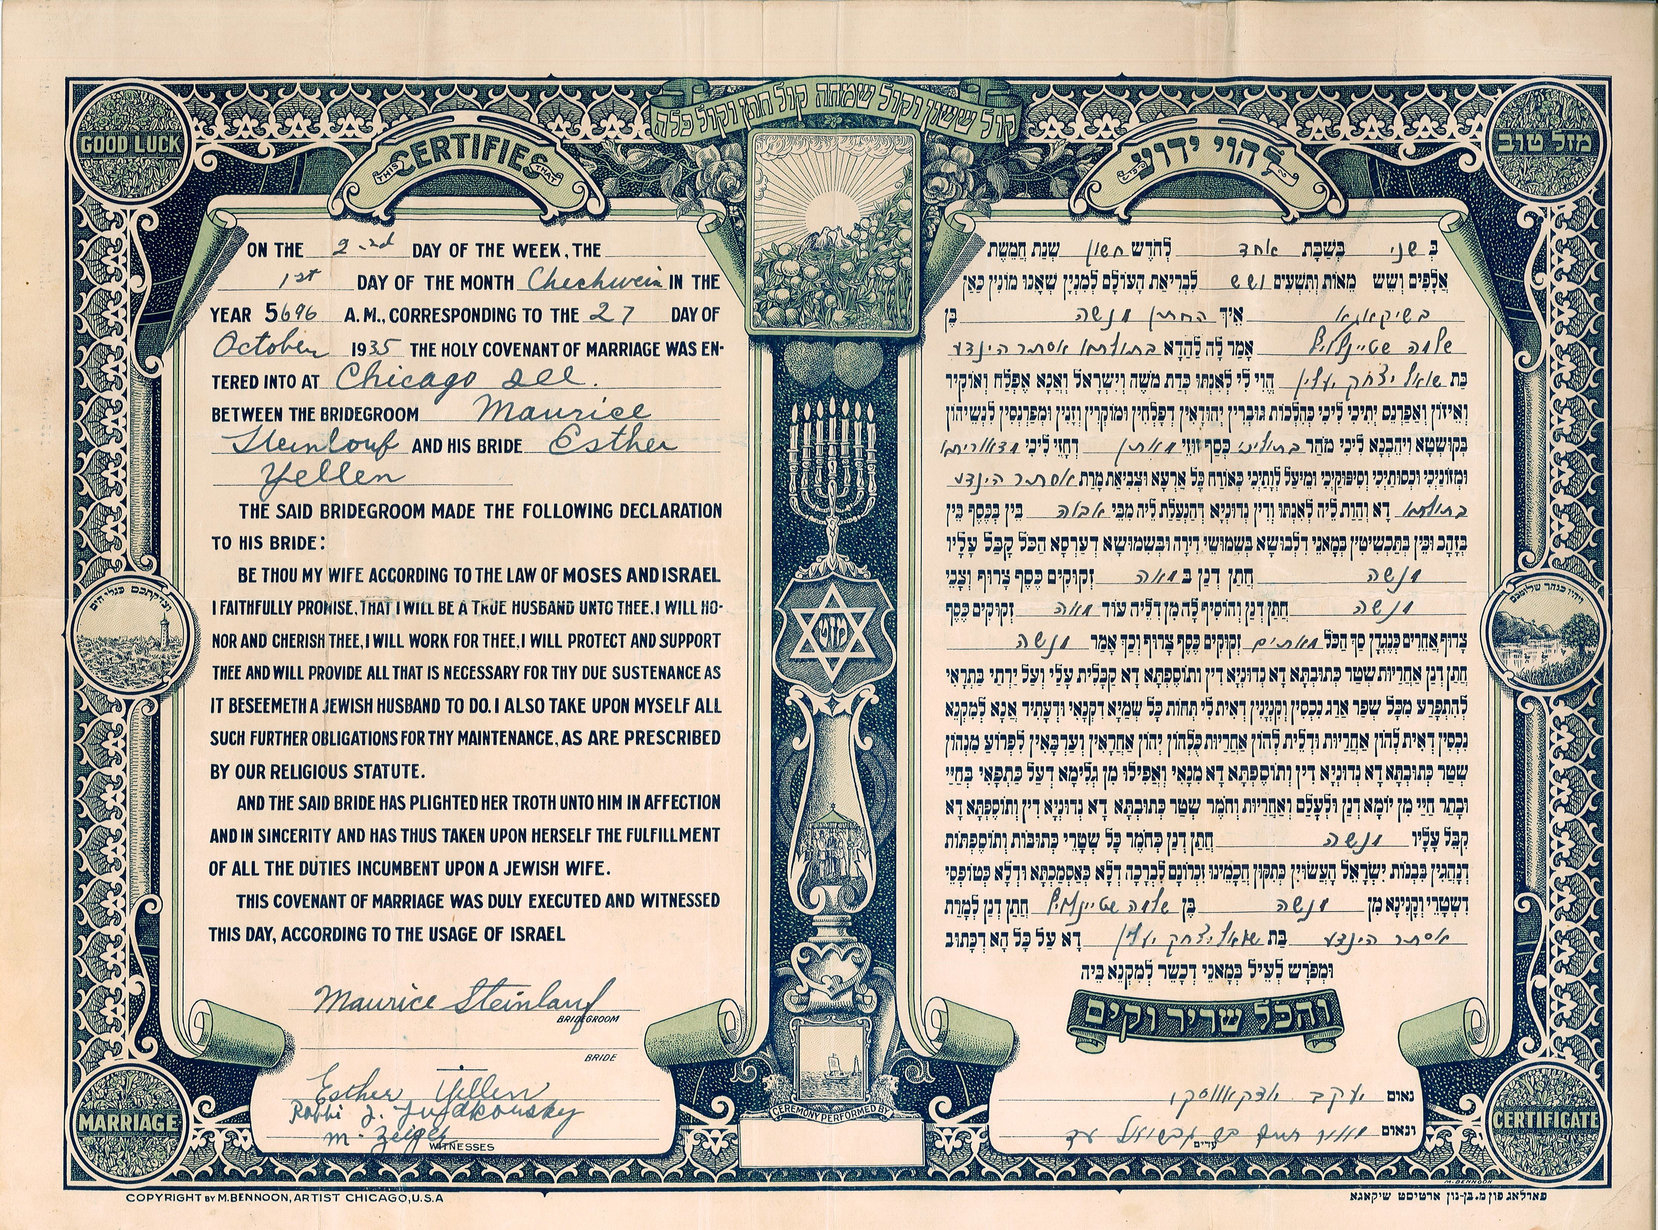 קול ששון וקול שמחה קול חתן וקול כלה
GOOD LUCK
THIS CERTIFIES THAT
ON THE 2-nd DAY OF THE WEEK, THE
1st DAY OF THE MONTH Chechwein IN THE
YEAR 5696 A.M., CORRESPONDING TO THE 27 DAY OF
October 1935 THE HOLY COVENANT OF MARRIAGE WAS EN-
TERED INTO AT Chicago Ill.
BETWEEN THE BRIDEGROOM Maurice
Steinlouf AND HIS BRIDE Esther
Yellen
THE SAID BRIDEGROOM MADE THE FOLLOWING DECLARATION
TO HIS BRIDE:
BE THOU MY WIFE ACCORDING TO THE LAW OF MOSES AND ISRAEL
I FAITHFULLY PROMISE, THAT I WILL BE A TRUE HUSBAND UNTO THEE. I WILL HO-
NOR AND CHERISH THEE, I WILL WORK FOR THEE, I WILL PROTECT AND SUPPORT
THEE AND WILL PROVIDE ALL THAT IS NECESSARY FOR THY DUE SUSTENANCE AS
IT BESEEMETH A JEWISH HUSBAND TO DO. I ALSO TAKE UPON MYSELF ALL
SUCH FURTHER OBLIGATIONS FOR THY MAINTENANCE, AS ARE PRESCRIBED
BY OUR RELIGIOUS STATUTE.
AND THE SAID BRIDE HAS PLIGHTED HER TROTH UNTO HIM IN AFFECTION
AND IN SINCERITY AND HAS THUS TAKEN UPON HERSELF THE FULFILLMENT
OF ALL THE DUTIES INCUMBENT UPON A JEWISH WIFE.
THIS COVENANT OF MARRIAGE WAS DULY EXECUTED AND WITNESSED
THIS DAY, ACCORDING TO THE USAGE OF ISRAEL
Maurice Steinlauf
BRIDEGROOM
BRIDE
Esther Yellen
Rabbi J.
M. Zeigel
WITNESSES
MARRIAGE
CEREMONY PERFORMED BY
מזל טוב
להוי ידוע
בּ שני בְּשַׁבָּת אחד לְחֹדֶשׁ חשון שְׁנַת חֲמֵשֶׁת
אֲלָפִים וְשֵׁשׁ מֵאוֹת וְתִשְׁעִים ושש לִבְרִיאַת הָעוֹלָם לְמִנְיָן שֶׁאָנוּ מוֹנִין כַּאן
בשיקאגא אֵיךְ החתן מנשה בֶּן
שלמה אֲמַר לָהּ לְהָדָא בתולתא אסתר הינדע
בַּת שואל יצחק יעלין הֱוִי לִי לְאִנְתּוּ כְּדַת משֶׁה וְיִשְׂרָאֵל וַאֲנָא אֶפְלַח וְאוֹקִיר
וְאֵיזוֹן וַאֲפַרְנֵס יָתִיכִי לִיכִי כְּהִלְכוֹת גּוּבְרִין יְהוּדָאִין דְּפָלְחִין וּמוֹקְרִין וְזָנִין וּמְפַרְנְסִין לִנְשֵׁיהוֹן
בְּקוּשְׁטָא וִיהֵבְנָא לִיכִי מֹהַר בתוליכי כְּסַף זוּזֵי מאתן דְּחָזֵי לִיכִי מדאוריתא
וּמְזוֹנַיְכִי וּכְסוּתַיְכִי וְסִיפּוּקַיְכִי וּמֵיעַל לְוָתַיְכִי כְּאוֹרַח כָּל אַרְעָא וּצְבִיאַת מָרַת אסתר הינדע
בתולתא דָּא וַהֲוַת לֵיהּ לְאִנְתּוּ וְדֵין נְדוּנְיָא דְּהַנְעֲלַת לֵיהּ מִבֵּי אבוה בֵּין בְּכֶסֶף בֵּין
בְּזָהָב וּבֵין בְּתַכְשִׁיטִין בְּמָאנֵי דִלְבוּשָׁא בְּשִׁמּוּשֵׁי דִירָה וּבְשִׁמּוּשָׁא דְעַרְסָא הַכֹּל קִבֵּל עָלָיו
מנשה חֲתַן דְּנַן בּ מאה זְקוּקִים כֶּסֶף צָרוּף וְצָבִי
מנשה חֲתַן דְּנַן וְהוֹסִיף לָהּ מִן דִּילֵיהּ עוֹד מאה זְקוּקִים כֶּסֶף
צָרוּף אֲחֵרִים כְּנֶגְדָּן סַךְ הַכֹּל מאתים זְקוּקִים כֶּסֶף צָרוּף וְכָךְ אָמַר מנשה
חֲתַן דְּנַן אַחֲרָיוּת שְׁטַר כְּתוּבְּתָא דָּא נְדוּנְיָא דֵין וְתוֹסֶפְתָּא דָּא קַבָּלִית עָלַי וְעַל יַרְתַי בַּתְרָאִי
לְהִתְפָּרַע מִכָּל שְׁפַר אֲרַג נִכְסִין וְקִנְיָנִין דְּאִית לִי תְּחוֹת כָּל שְׁמַיָּא דִּקְנַאי וּדְעָתִיד אֲנָא לְמִקְנָא
נִכְסִין דְּאִית לְהוֹן אַחֲרָיוּת וּדְלֵית לְהוֹן אַחֲרָיוּת כֻּלְּהוֹן יְהוֹן אַחֲרָאִין וְעַרְבָּאִין לִפְרוֹעַ מִנְּהוֹן
שְׁטַר כְּתוּבְּתָא דָּא נְדוּנְיָא דֵין וְתוֹסֶפְתָּא דָּא מִנָּאי וַאֲפִילוּ מִן גְּלִימָא דְעַל כַּתְפָאי בְּחַיֵּי
וּבָתַר חַיַּי מִן יוֹמָא דְנַן וּלְעָלַם וְאַחֲרָיוּת וְחֹמֶר שְׁטַר כְּתוּבְּתָא דָּא נְדוּנְיָא דֵין וְתוֹסֶפְתָּא דָּא
קִבֵּל עָלָיו מנשה חֲתַן דְּנַן כְּחֹמֶר כָּל שְׁטָרֵי כְּתוּבּוֹת וְתוֹסֶפְתּוֹת
דְּנָהֲגִין בִּבְנוֹת יִשְׂרָאֵל הָעֲשׂוּיִן כְּתִקּוּן חֲכָמֵינוּ זִכְרוֹנָם לִבְרָכָה דְּלָא כְּאַסְמַכְתָּא וּדְלָא כְּטוֹפְסֵי
דִשְׁטָרֵי וְקָנִינָא מִן מנשה בֶּן שלמה חֲתַן דְּנַן לְמָרַת
אסתר הינדע בַּת שואל יצחק יעלין דָּא עַל כָּל הָא דְּכָתוּב
וּמְפֹרָשׁ לְעֵיל בְּמָאנֵי דְּכָשֵׁר לְמִקְנָא בֵיהּ
והכל שריר וקים
נאום יעקב
ונאום
עדים
CERTIFICATE
COPYRIGHT BY M. BENNOON, ARTIST CHICAGO, U.S.A
M. BENNOON
פארלאג פון מ. בן-נון ארטיסט שיקאגא